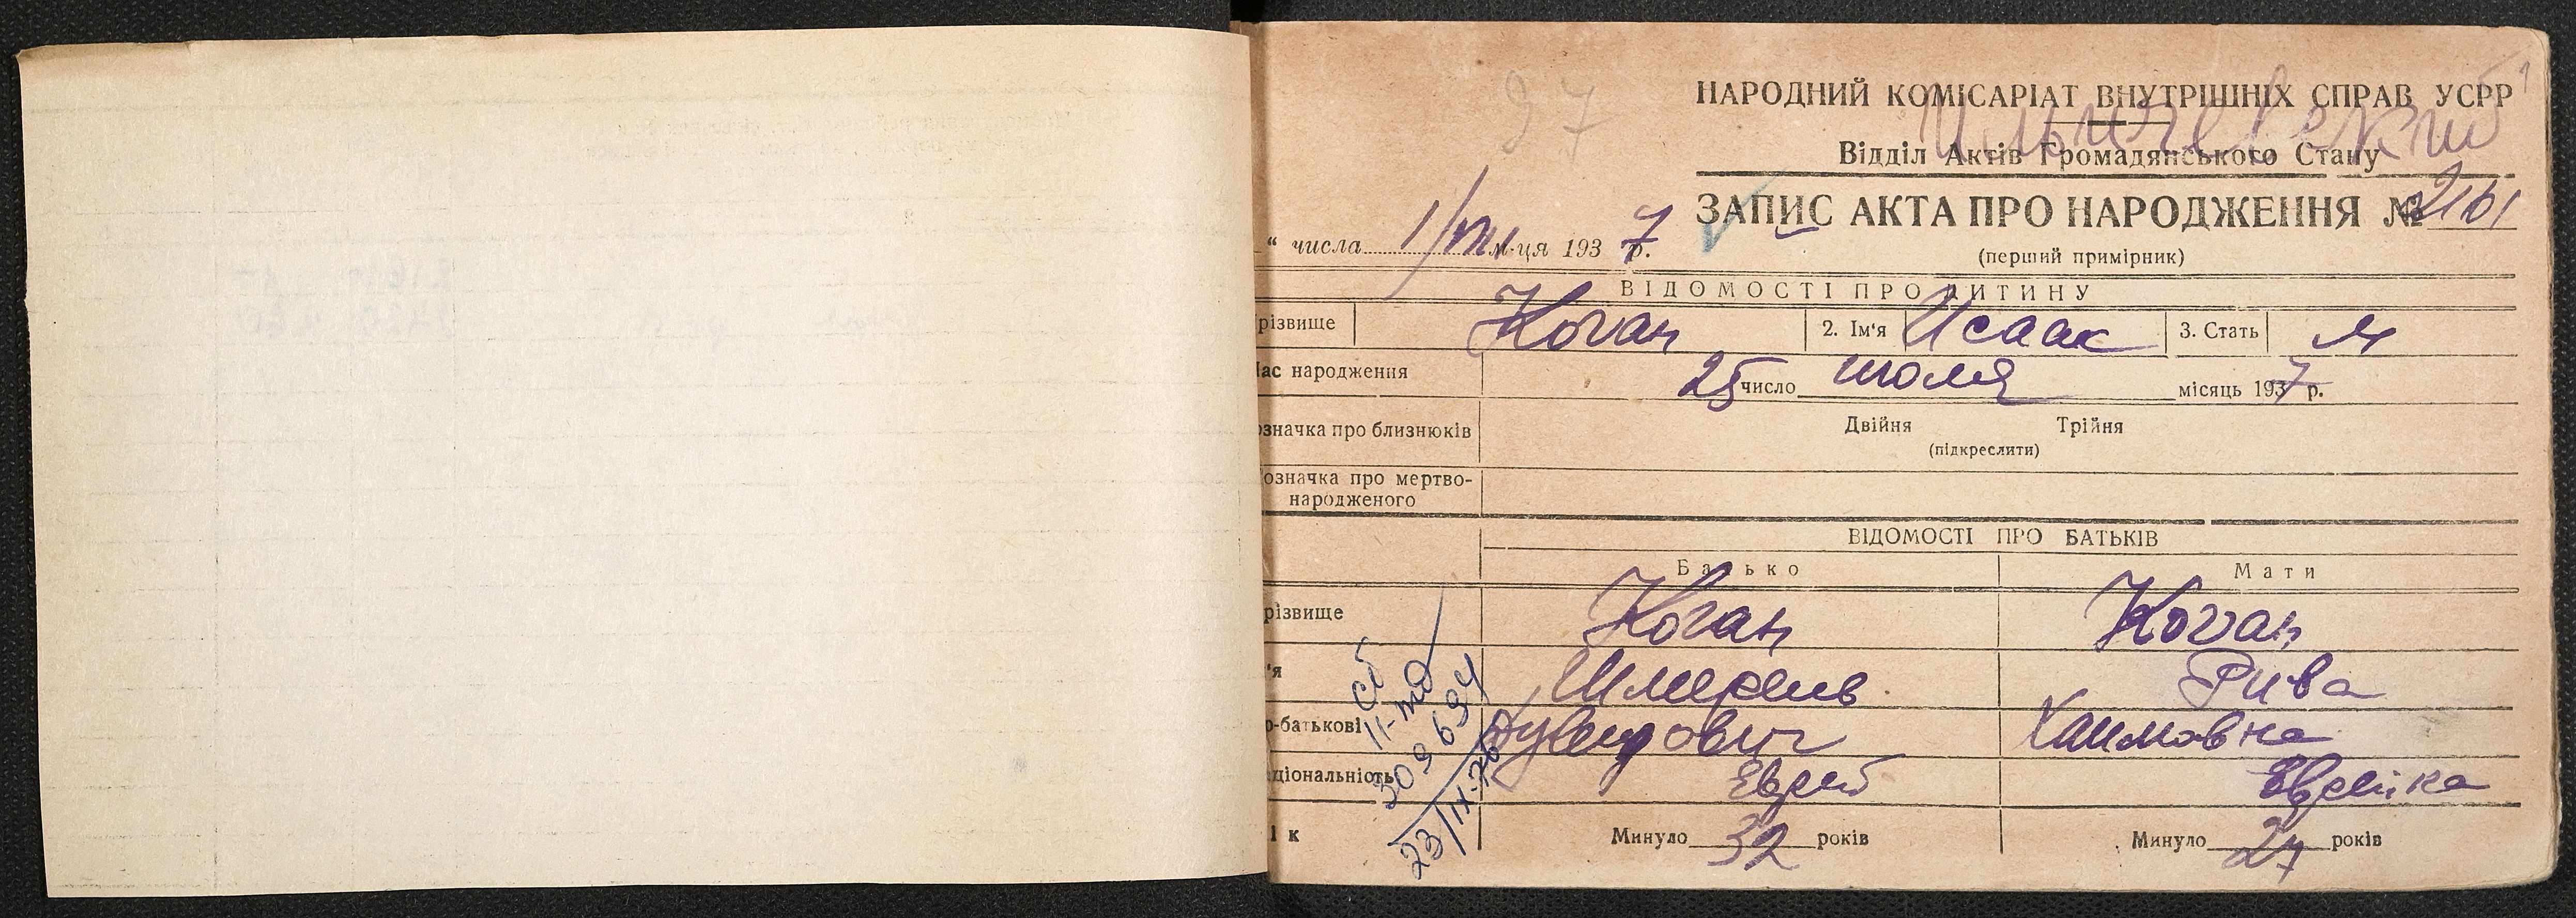 97
НАРОДНИЙ КОМІСАРІАТ ВНУТРІШНІХ СПРАВ УСРР
Відділ Актів Громадянського Стану
ЗАПИС АКТА ПРО НАРОДЖЕННЯ № 2161
(перший примірник)
“ числа 1/VIII м-ця 1937 р.
ВІДОМОСТІ ПРО ДИТИНУ
різвище Коган 2. Ім'я Исаак 3. Стать м
час народження 25 число июля місяць 1937 р.
означка про близнюків Двійня Трійня
(підкреслити)
означка про мертво-
народженого
ВІДОМОСТІ ПРО БАТЬКІВ
Батько Мати
різвище Коган Коган
'я Шмерель Рива
о-батькові Хаимовна
ціональність Еврей Еврейка
ік Минуло 32 років Минуло 27 років
309694
23/IX-76